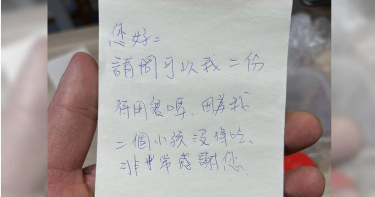 您好=
請問可以我二份
待用餐嗎,因為我
二個小孩沒得吃、
非常感謝您